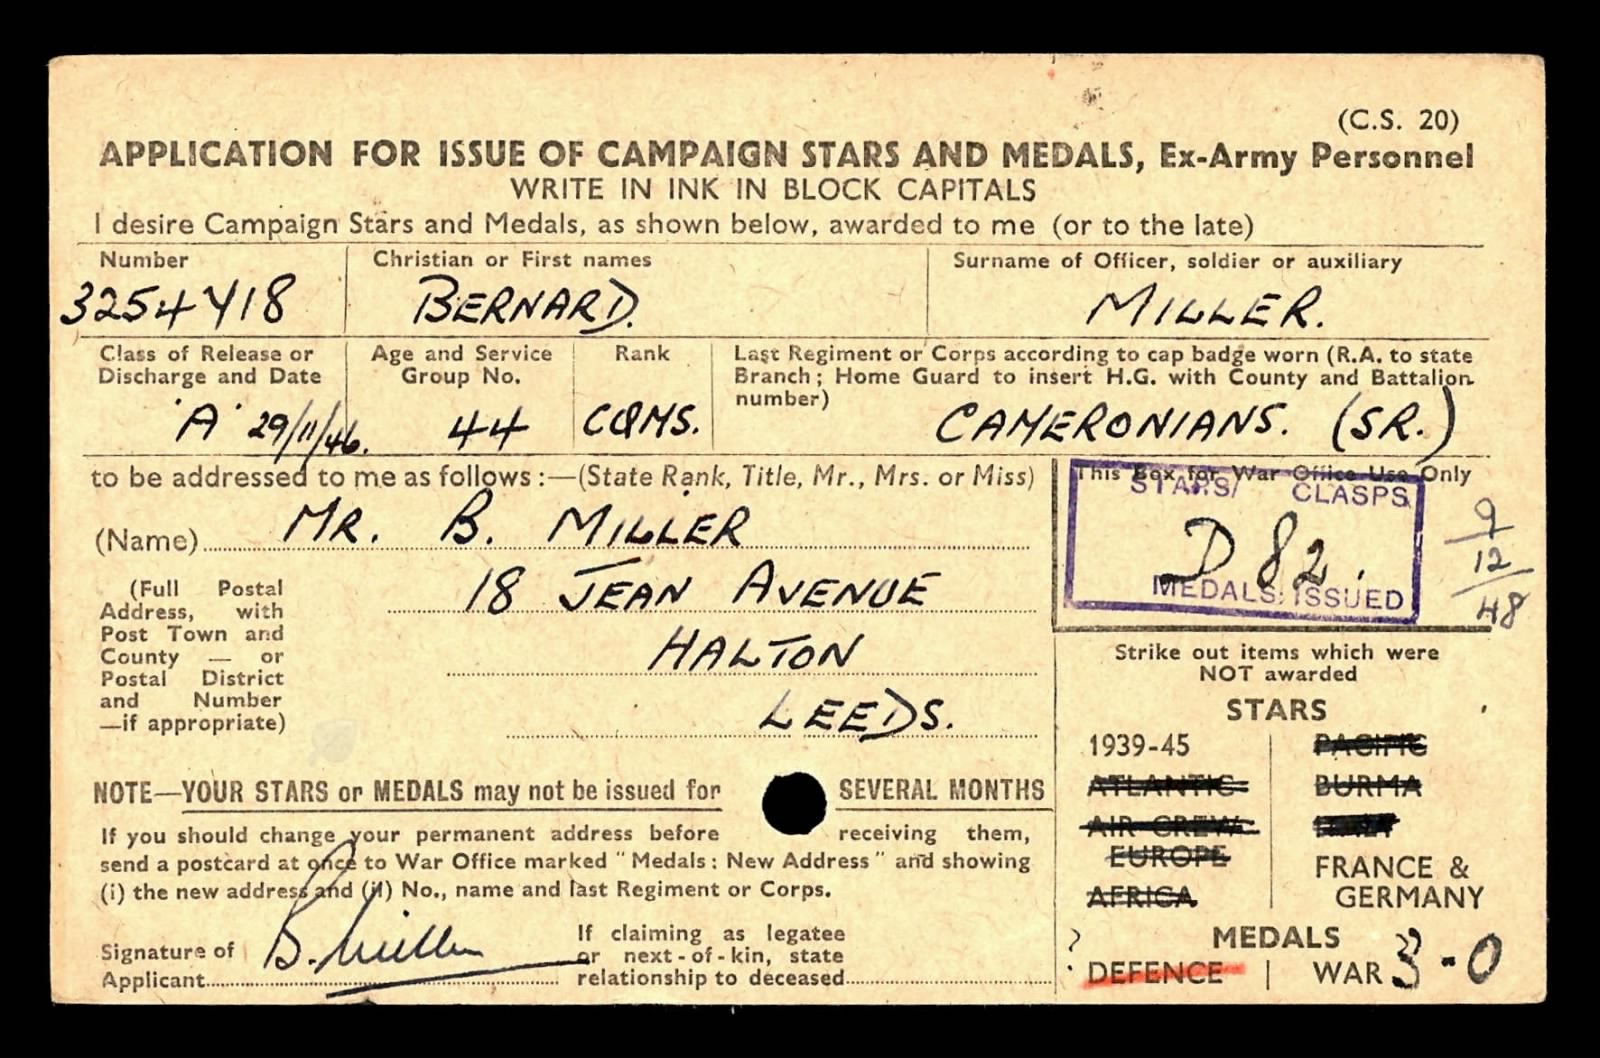 (C.S. 20)
APPLICATION FOR ISSUE OF CAMPAIGN STARS AND MEDALS, Ex-Army Personnel
WRITE IN INK IN BLOCK CAPITALS
I desire Campaign Stars and Medals, as shown below, awarded to me (or to the late)
Number Christian or First names Surname of Officer, soldier or auxiliary
3254418 BERNARD. MILLER.
Class of Release or Discharge and Date
Age and Service Group No.
Rank
Last Regiment or Corps according to cap badge worn (R.A. to state
Branch; Home Guard to insert H.G. with County and Battalion
number)
'A' 29/11/46. 44 CQMS. CAMERONIANS. (SR.)
to be addressed to me as follows:—(State Rank, Title, Mr., Mrs. or Miss)
(Name) MR. B. MILLER
(Full Postal
Address, with
Post Town and
County — or
Postal District
and Number
—if appropriate)
18 JEAN AVENUE
HALTON
LEEDS.
This Box for War Office Use Only
STARS/ CLASPS
D 82.
MEDALS ISSUED
9
12
48
Strike out items which were
NOT awarded
STARS
1939-45 PACIFIC
ATLANTIC BURMA
AIR CREW ITALY
EUROPE
FRANCE &
AFRICA GERMANY
MEDALS
? DEFENCE WAR 3-0
NOTE—YOUR STARS or MEDALS may not be issued for SEVERAL MONTHS
If you should change your permanent address before receiving them,
send a postcard at once to War Office marked "Medals: New Address" and showing
(i) the new address and (ii) No., name and last Regiment or Corps.
Signature of
Applicant
B. Miller
If claiming as legatee
or next-of-kin, state
relationship to deceased